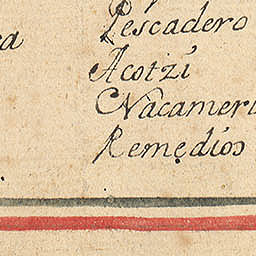 Pescadero
Acotzí
Nacameri
Remedios